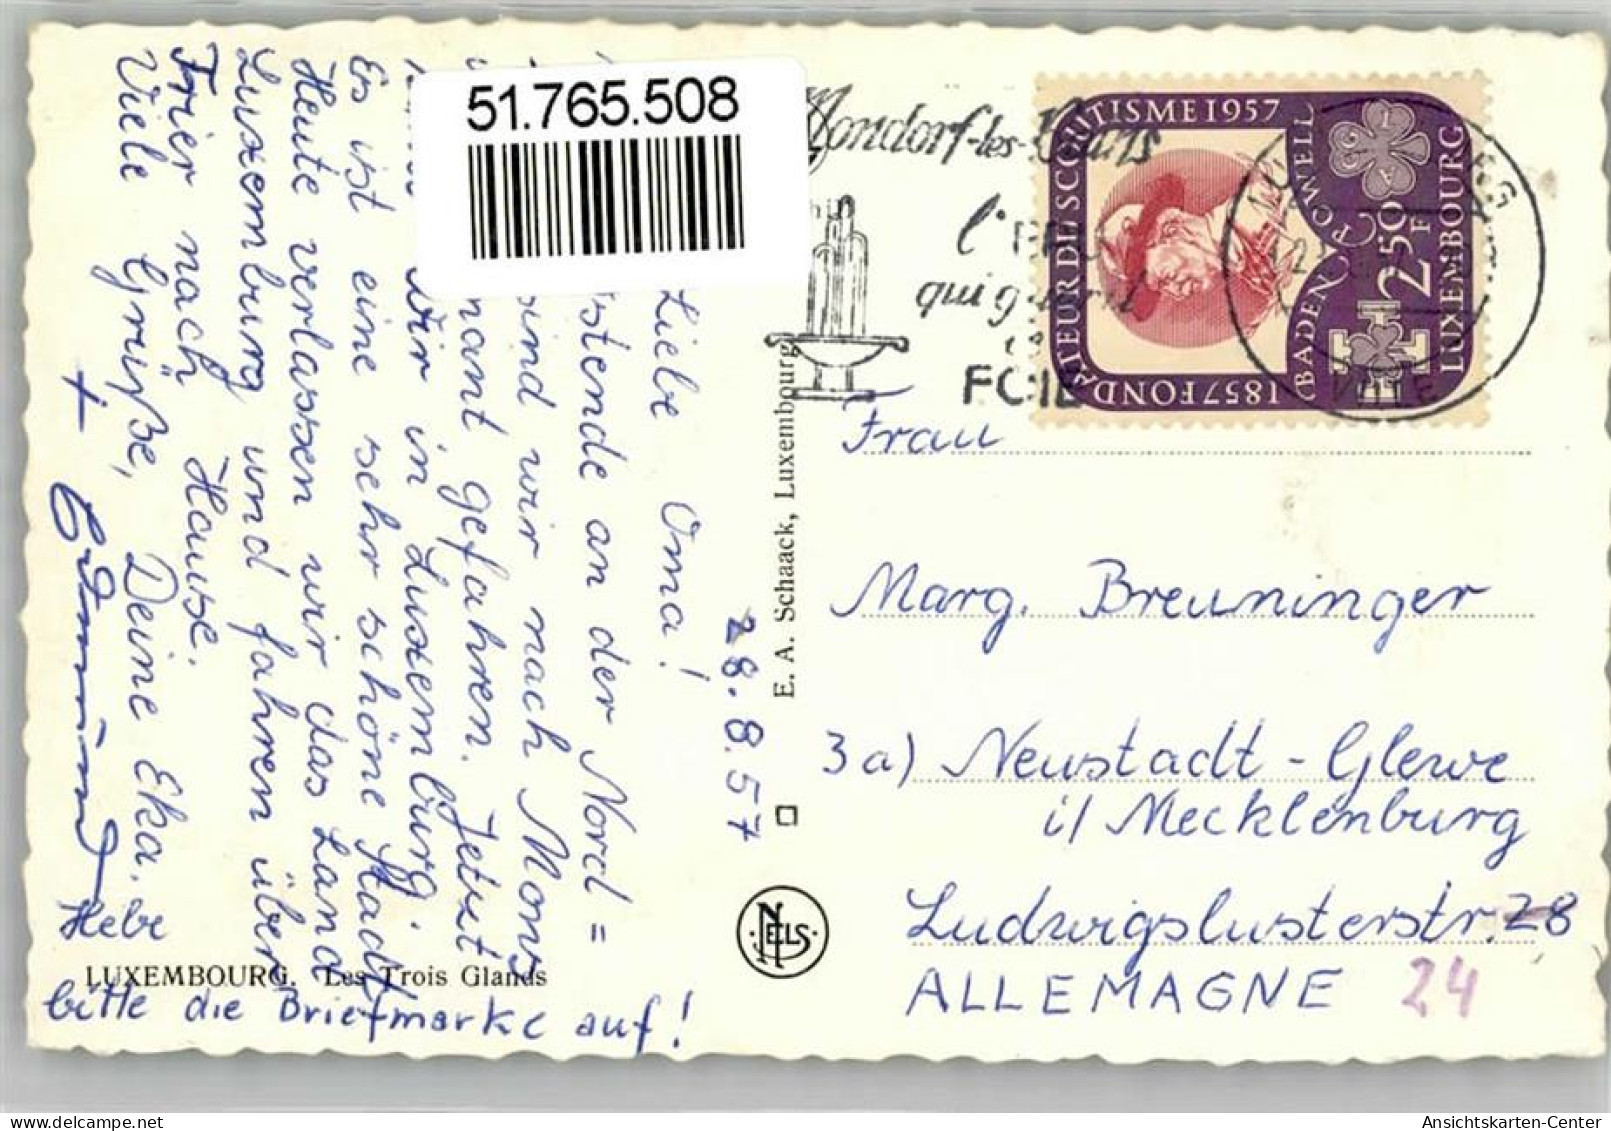 51.765.508
28.8.57
Liebe Oma!
an der Nord=
sind wir nach Mons
gefahren. Jetzt
wir in Luxemburg.
Es ist eine sehr schöne Stadt
Heute verlassen wir das Land
Luxemburg und fahren über
Trier nach Hause.
Viele Grüße, Deine Eka.
+
Hebe
bitte die Briefmarke auf!
LUXEMBOURG. Les Trois Glands
E. A. Schaack, Luxembourg
NELS
Mondorf-les-Bains
l'EAU
qui guérit
le
FOIE
1857 FONDATEUR DU SCOUTISME 1957
BADEN POWELL
2.50 F
LUXEMBOURG
LUXEMBOURG
VILLE
Frau
Marg. Breuninger
3a) Neustadt-Glewe
i/ Mecklenburg
Ludwigslusterstr. 28
ALLEMAGNE 24
Ansichtskarten-Center
delcampe.net